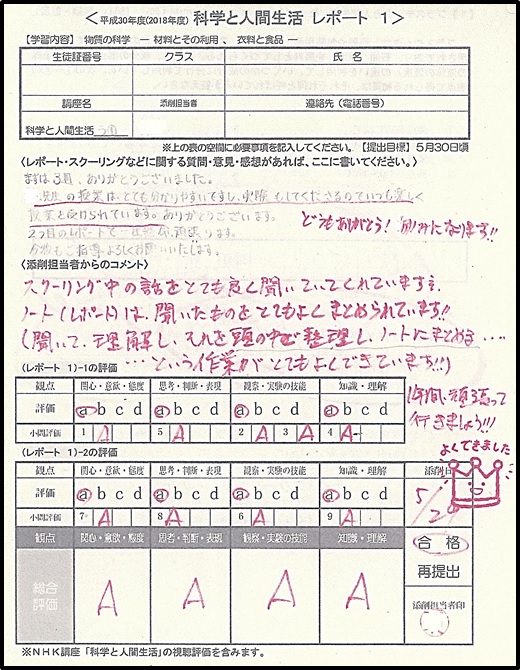 ＜平成30年度(2018年度) 科学と人間生活 レポート 1＞
【学習内容】 物質の科学 ― 材料とその利用 、 衣料と食品 ―
生徒証番号 クラス 氏 名
講座名 添削担当者 連絡先（電話番号）
科学と人間生活
※上の表の空間に必要事項を記入してください。【提出目標】 5月30日頃
〈レポート・スクーリングなどに関する質問・意見・感想があれば、ここに書いてください。〉
まずは3週、ありがとうございました。
先生の授業は、とても分かりやすいですし、実験もしてくださるのでいつも楽しく
授業を受けられています。ありがとうございます。
どうもありがとう! 励みになります!!
今後もご指導よろしくお願いいたします。
〈添削担当者からのコメント〉
スクーリング中の話をとても良く聞いていてくれていますネ。
ノート(レポート)は、聞いたものをとてもよくまとめられています!!
(聞いて、理解し、それを頭の中で整理し、ノートにまとめる‥‥
‥‥という作業がとてもよくできています!!!)
1年間、頑張って
行きましょう!!!
（レポート 1)-1の評価
観点 関心・意欲・態度 思考・判断・表現 観察・実験の技能 知識・理解
評価 a b c d a b c d a b c d a b c d
小問評価 1 A 5 A 2 A 3 A 4 A
よくできました
（レポート 1)-2の評価
観点 関心・意欲・態度 思考・判断・表現 観察・実験の技能 知識・理解 添削日
評価 a b c d a b c d a b c d a b c d
小問評価 7 A 8 A 6 A 9 A
観点 関心・意欲・態度 思考・判断・表現 観察・実験の技能 知識・理解 合 格
総合評価 A A A A 再提出
添削担当者印
※NHK講座「科学と人間生活」の視聴評価を含みます。